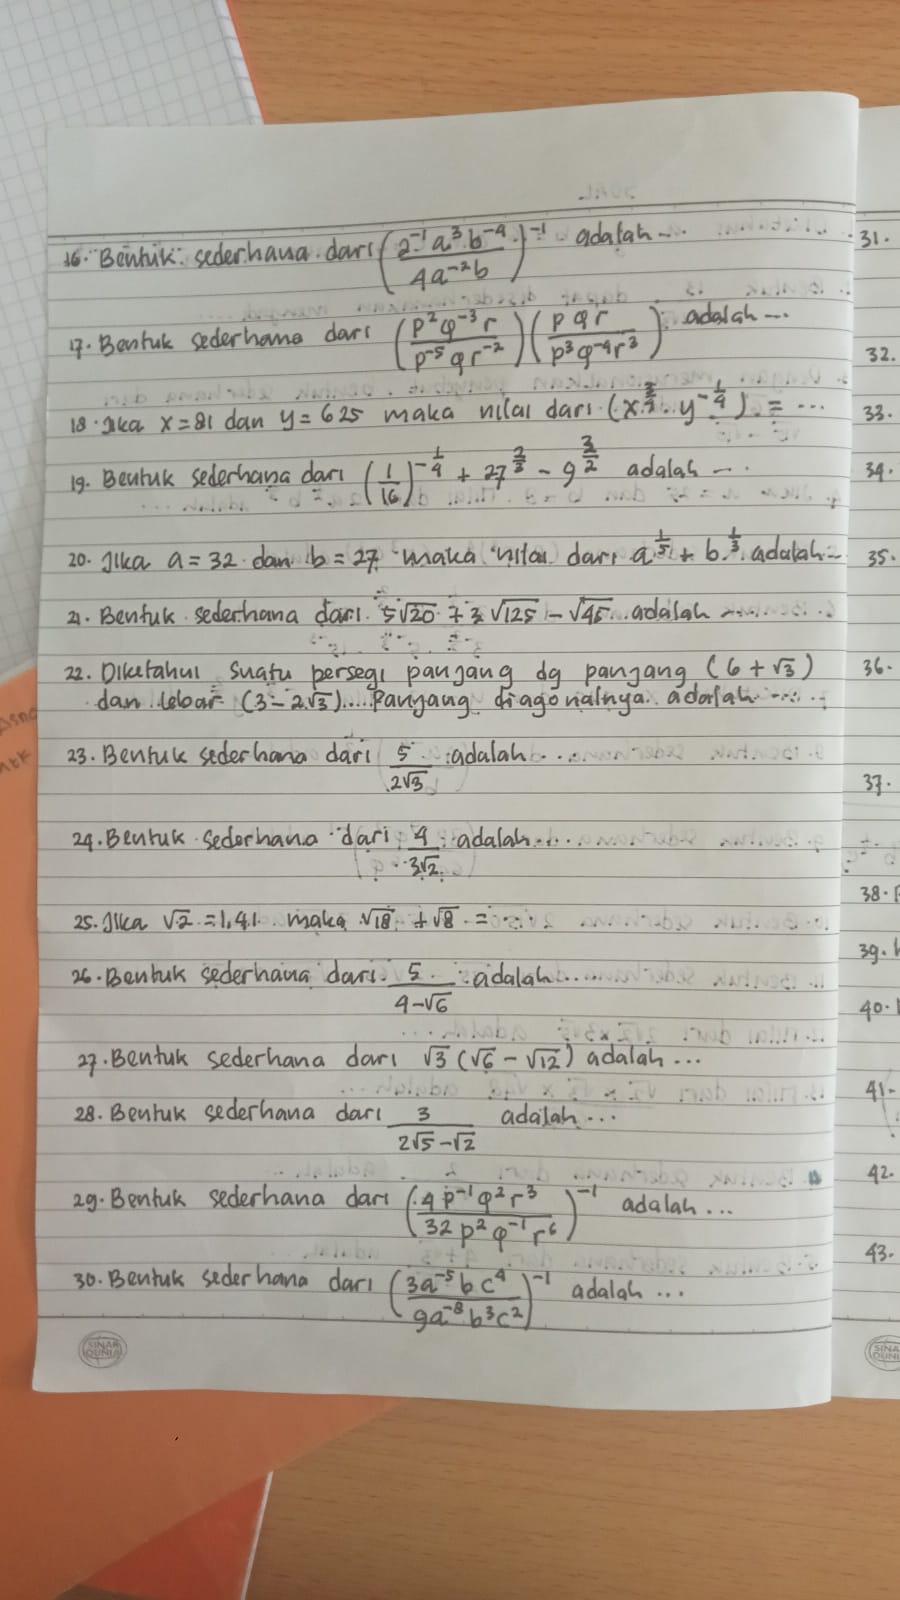 16. Bentuk sederhana dari (2⁻¹ a³ b⁻⁴ / 4a⁻² b)⁻¹ adalah...
17. Bentuk sederhana dari (p² q⁻³ r / p⁻⁵ q r⁻²) (p q r / p³ q⁻⁴ r³) adalah...
18. Jika x = 81 dan y = 625 maka nilai dari (x^ . y^-1/4) = ...
19. Bentuk sederhana dari (1/16)^-1/4 + 27^2/3 - 9^3/2 adalah...
20. Jika a = 32 dan b = 27 maka nilai dari a^1/5 + b^1/3 adalah
21. Bentuk sederhana dari 5√20 + 3√125 - √45 adalah...
22. Diketahui suatu persegi panjang dg panjang (6 + √3)
dan lebar (3 - 2√3).... Panjang diagonalnya adalah.....
23. Bentuk sederhana dari 5/2√3 adalah...
24. Bentuk sederhana dari 4/3√2 adalah...
25. Jika √2 = 1,41 maka √18 + √8 = ...
26. Bentuk sederhana dari 5/(4-√6) adalah...
27. Bentuk sederhana dari √3 (√6 - √12) adalah...
28. Bentuk sederhana dari 3/(2√5 - √2) adalah...
29. Bentuk sederhana dari (4 p⁻¹ q² r³ / 32 p² q⁻¹ r⁶)⁻¹ adalah...
30. Bentuk sederhana dari (3a⁻⁵ b c⁴ / 9a⁻⁸ b³ c²)⁻¹ adalah...
SINAR
DUNIA
31.
32.
33.
34.
35.
36.
37.
38.
39.
40.
41.
42.
43.
SINA
DUNI